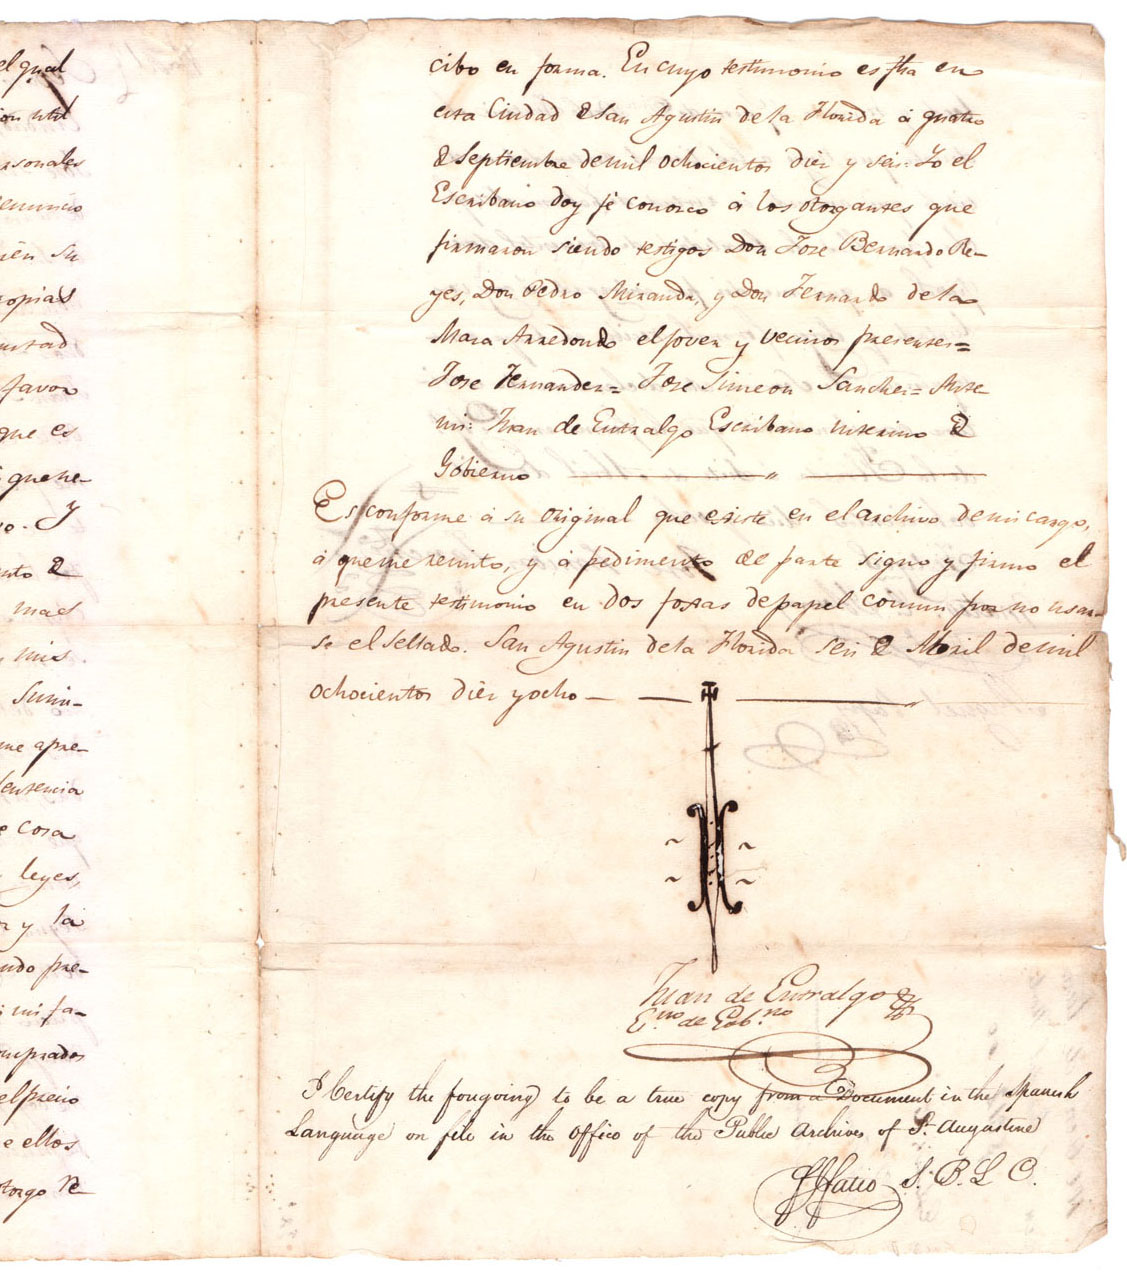 el qual
ion util
rsonales
enuncio
ien su
ropias
ustad
favor
que es
que he-
o. Y
nto &
mas
mis
Sumi-
me apre-
Sentencia
e cosa
leyes,
y la
ndo pre-
mi fa-
omprados
el precio
e ellos
otorgo re-
cibo en forma. En cuyo testimonio es fha en
esta Ciudad & San Agustin de la Florida á quatro
& Septiembre de mil ochocientos diez y seis. Yo el
Escribano doy fé conozco á los otorgantes que
firmaron siendo testigos Don Jose Bernardo Re-
yes, Don Pedro Miranda, y Don Fernando de la
Maza Arredondo el joven y vecinos presentes=
Jose Fernandez= Jose Simeon Sanchez= Ante
mi: Juan de Entralgo Escribano interino &
Gobierno
Es conforme á su original que existe en el archivo de mi cargo,
á que me remito, y á pedimento de parte signo y firmo el
presente testimonio en dos foxas de papel comun por no usar-
se el sellado. San Agustin de la Florida seis & Abril de mil
ochocientos diez y ocho
Juan de Entralgo
E.no de Gob.no
I Certify the foregoing to be a true copy from a Document in the Spanish
Language on file in the office of the Public Archives of St. Augustine
Fatio S. B. L C.